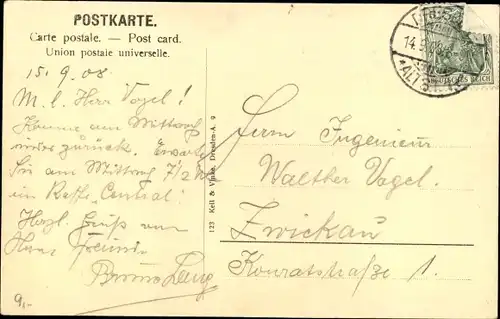 POSTKARTE.
Carte postale. — Post card.
Union postale universelle.
15. 9. 08
M. l. Herr Vogel!
Komme am Mittwoch
wieder zurück. Erwarte
Sie am Mittwoch 7/2
im Kaffe „Central“.
Herzl. Gruß von
Ihrem Freund
Bruno Lang
9,-
123 Keil & Vinke, Dresden-A. 9
14.9.08
*ALTST.
DEUTSCHES REICH
Herrn Ingenieur
Walther Vogel.
Zwickau
Konradstraße 1.